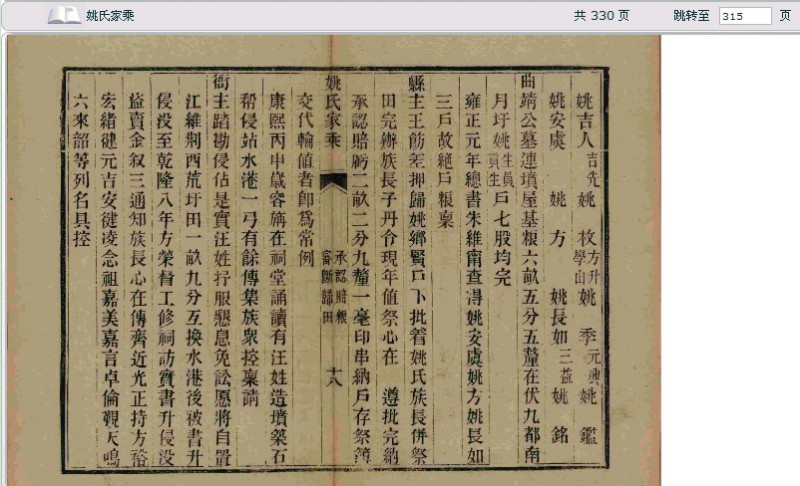 姚氏家乘
共 330 页
跳转至 315 页
姚吉人 吉先 姚 枚 方升 學山 姚 季 元興 姚 鑑
姚安虞 姚 方 姚長如 三益 姚 銘
曲靖公墓連墳屋基糧六畝五分五釐在伏九都南
月圩姚 生員 貢生 戶七股均完
雍正元年總書朱維甯查得姚安虞姚方姚長如
三戶故絶戶糧稟
縣主王飭差押歸姚鄉賢戶下批着姚氏族長併祭
田完辦族長子丹令現年值祭心在 遵批完納
承認賠虧二畝二分九釐一毫印串納戶存祭簿
交代輪值者卽爲常例
姚氏家乘
承認賠糧
審斷歸田
十八
康熙丙申歲容旃在祠堂誦讀有汪姓造墳築石
幫侵站水港一弓有餘傳集族衆控稟請
衙主踏勘侵佔是實汪姓抒服懇息免訟愿將自置
江維荆西荒圩田一畝九分互換水港後被書升
侵没至乾隆八年方榮督工修祠訪實書升侵没
益賣金叙三通知族長心在傳齊近光正持方裕
宏緒健元吉安徙凌念祖嘉美嘉言卓倫觀天鳴
六來韶等列名具控